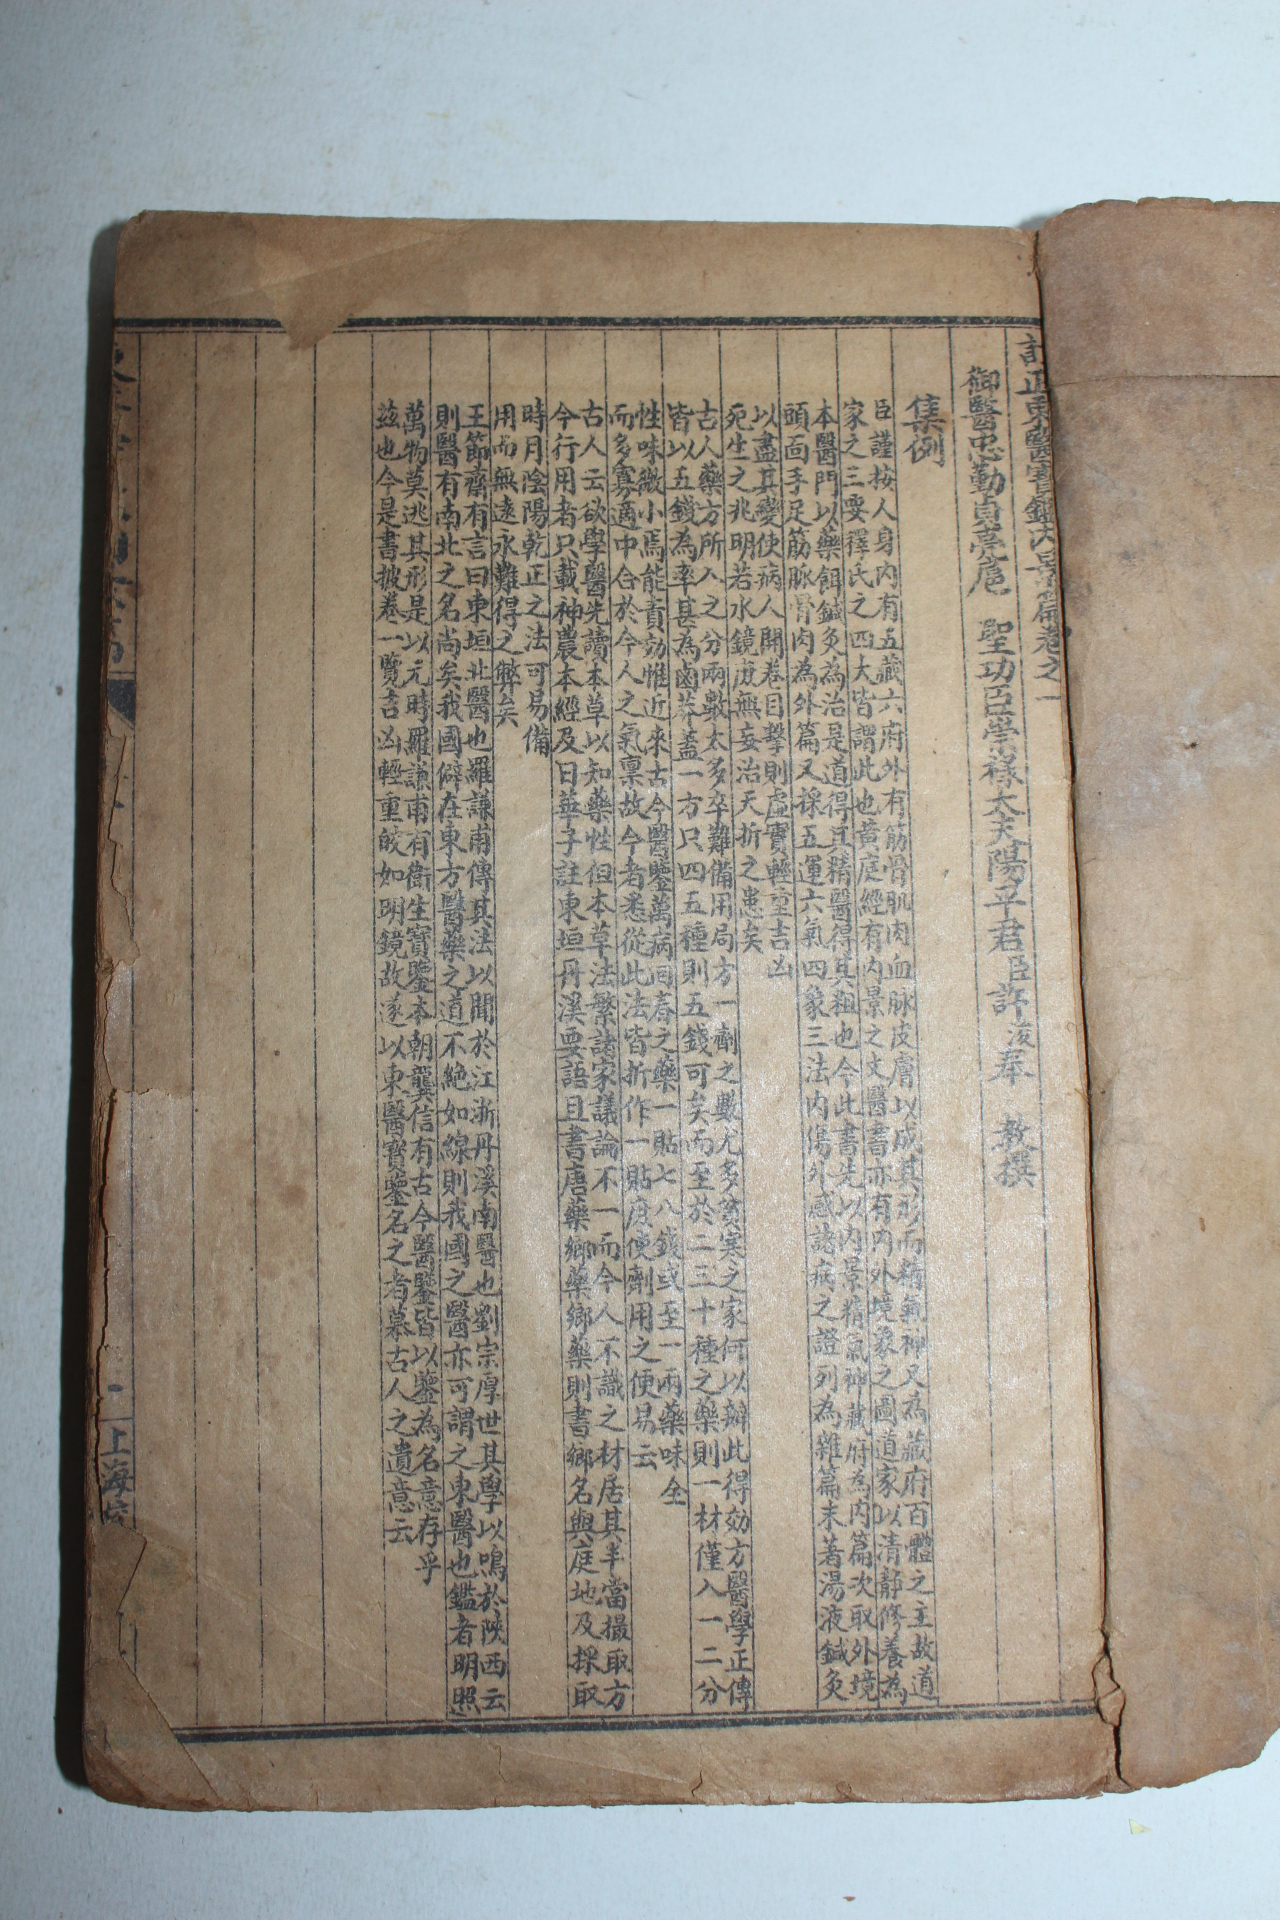 訂正東醫寶鑑內景篇卷之一
御醫忠勤貞亮扈 聖功臣崇祿大夫陽平君臣許浚奉 教撰
集例
臣謹按人身內有五藏六府外有筋骨肌肉血脉皮膚以成其形而精氣神又為藏府百體之主故道
家之三要釋氏之四大皆謂此也黃庭經有內景之文醫書亦有內外境象之圖道家以清靜修養為
本醫門以藥餌鍼灸為治是道得其精醫得其粗也今此書先以內景精氣神藏府為內篇次取外境
頭面手足筋脉骨肉為外篇又採五運六氣四象三法內傷外感諸病之證列為雜篇末著湯液鍼灸
以盡其變使病人開卷目擊則虛實輕重吉凶
死生之兆明若水鏡庶無妄治夭折之患矣
古人藥方所入之分兩數太多卒難備用局方一劑之數尤多貧寒之家何以辦此得効方醫學正傳
皆以五錢為率甚為鹵莽蓋一方只四五種則五錢可矣而至於二三十種之藥則一材僅入一二分
性味微小焉能責効惟近來古今醫鑒萬病回春之藥一貼七八錢或至一兩藥味全
而多寡適中合於今人之氣禀故今者悉從此法皆折作一貼庶使劑用之便易云
古人云欲學醫先讀本草以知藥性但本草法繁諸家議論不一而今人不識之材居其半當撮取方
今行用者只載神農本經及日華子註東垣丹溪要語且書唐藥鄉藥鄉藥則書鄉名與庭地及採取
時月陰陽乾正之法可易備
用而無遠永難得之弊矣
王節齋有言曰東垣北醫也羅謙甫傳其法以聞於江浙丹溪南醫也劉宗厚世其學以鳴於陝西云
則醫有南北之名尚矣我國僻在東方醫藥之道不絕如線則我國之醫亦可謂之東醫也鑑者明照
萬物莫逃其形是以元時羅謙甫有衛生寶鑒本朝龔信有古今醫鑒皆以鑒為名意存乎
玆也今是書披卷一覽吉凶輕重皎如明鏡故遂以東醫寶鑒名之者慕古人之遺意云
一 上海